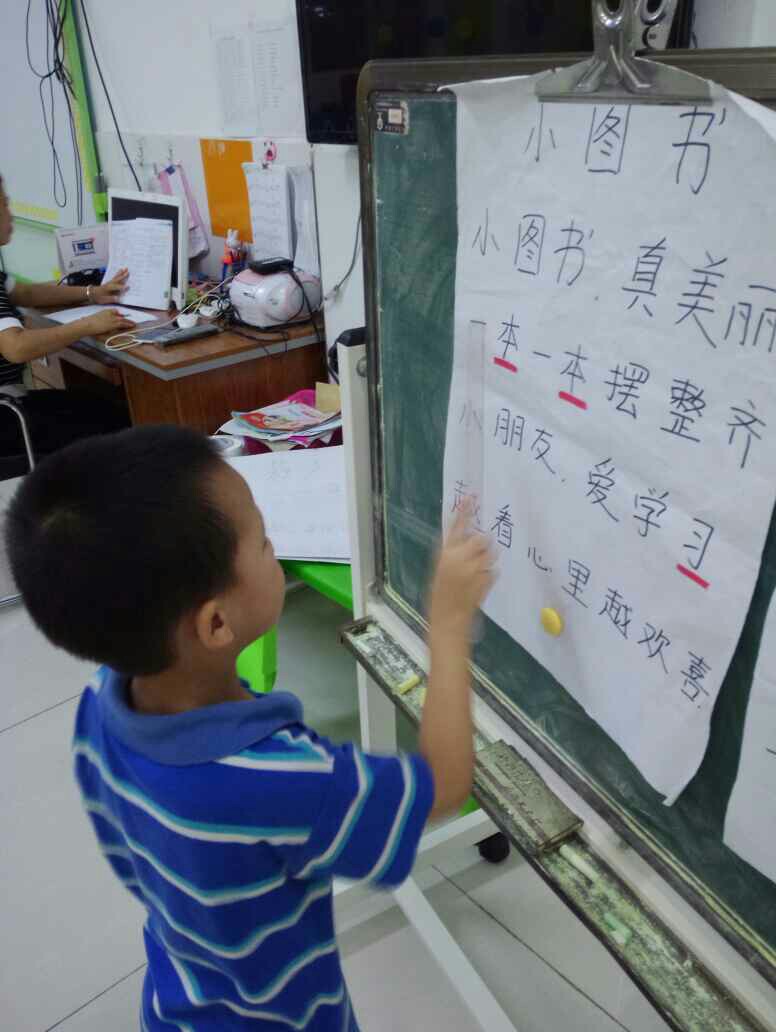 小图书
小图书，真美丽
一本一本摆整齐
小朋友，爱学习
越看心里越欢喜